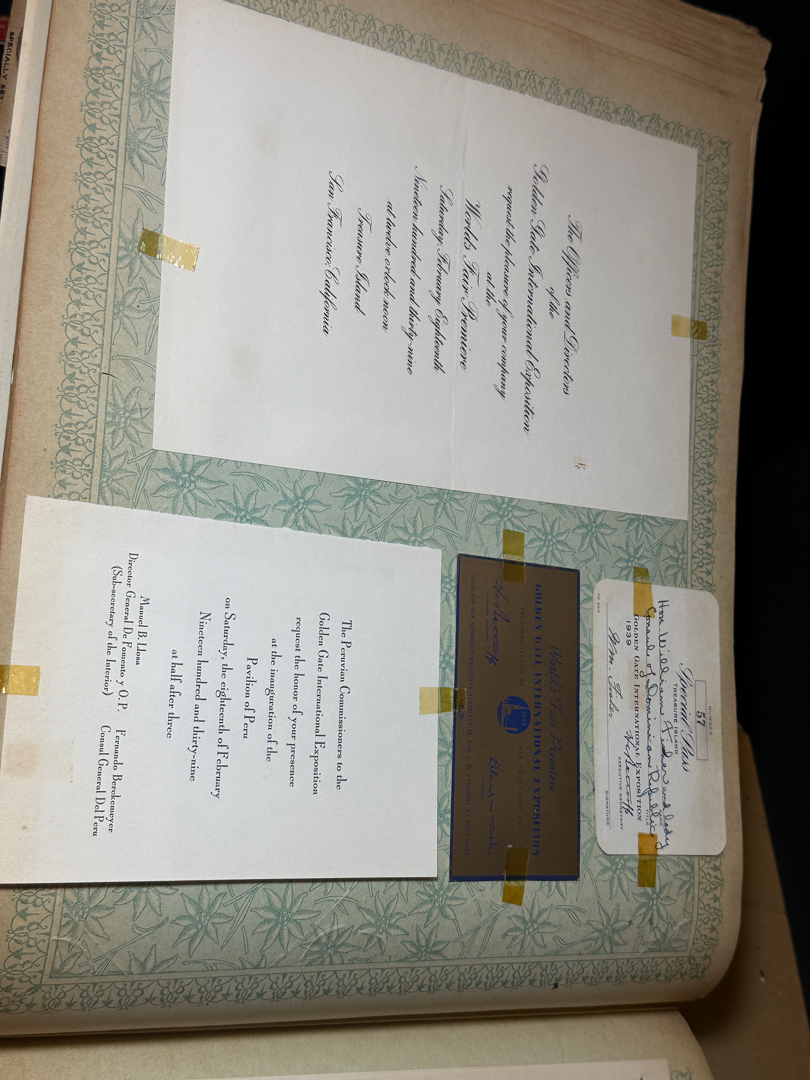 The Officers and Directors
of the
Golden Gate International Exposition
request the pleasure of your company
at the
World's Fair Premiere
Saturday, February Eighteenth
Nineteen hundred and thirty-nine
at twelve o'clock noon
Treasure Island
San Francisco, California
NUMBER
57
Press Pass
TREASURE ISLAND
Hon. William Fisher and lady
NAME
Consul of Dominican Republic
TITLE
GOLDEN GATE INTERNATIONAL EXPOSITION
1939
EXECUTIVE SECRETARY
SIGNATURE
World's Fair Premiere
GOLDEN GATE INTERNATIONAL EXPOSITION
The Peruvian Commissioners to the
Golden Gate International Exposition
request the honor of your presence
at the inauguration of the
Pavilion of Peru
on Saturday, the eighteenth of February
Nineteen hundred and thirty-nine
at half after three
Manuel B. Llosa
Director General De Fomento y O.P.
(Sub-secretary of the Interior)
Fernando Berckemeyer
Consul General Del Peru
SPECIALLY SET